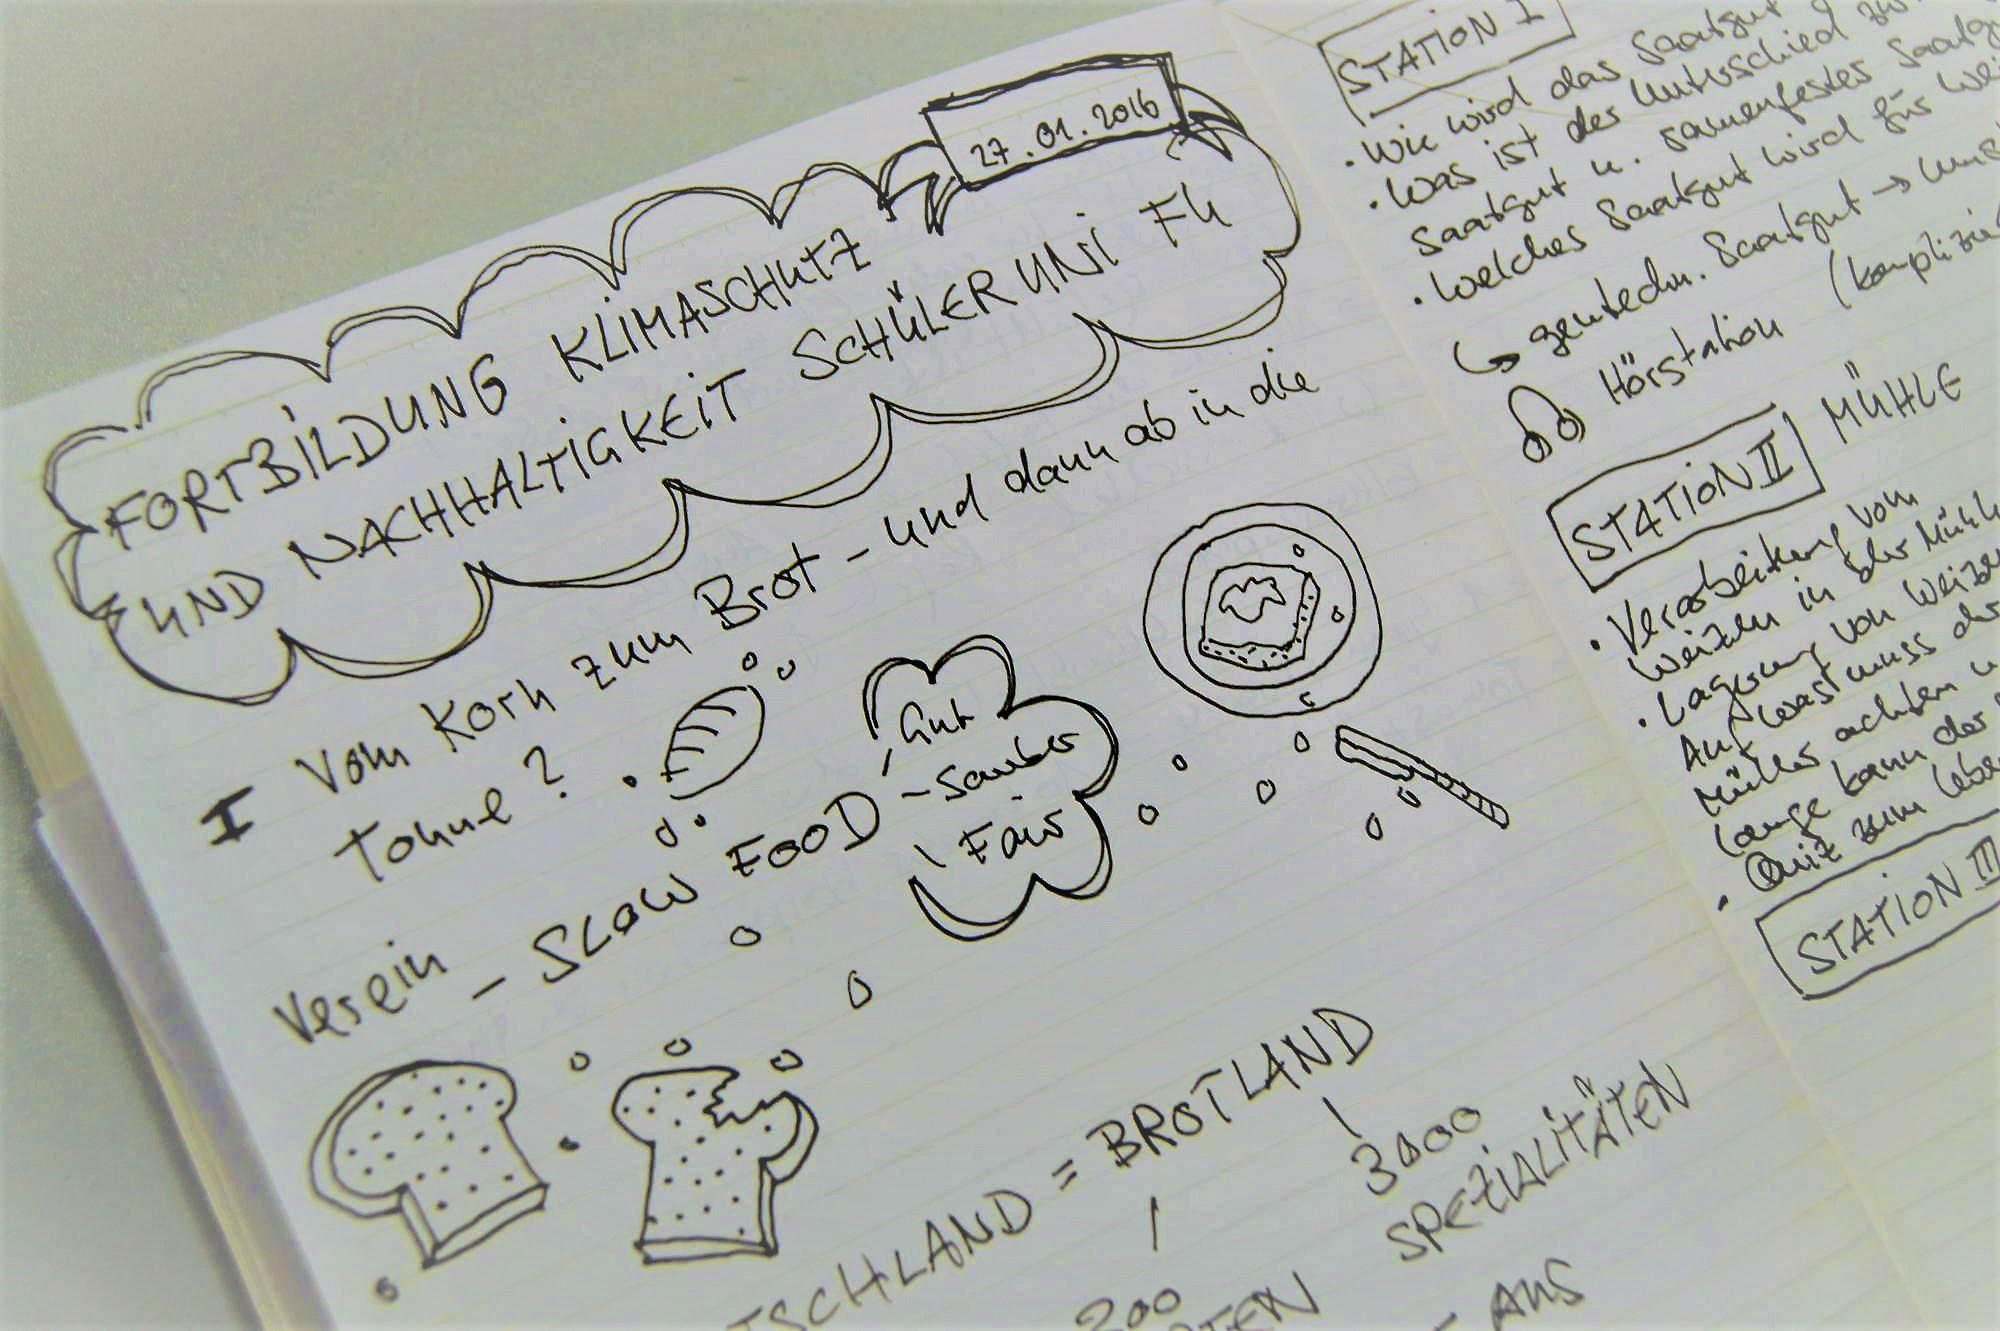 27.01.2016
FORTBILDUNG KLIMASCHUTZ
UND NACHHALTIGKEIT SCHÜLERUNI FU
I Vom Korn zum Brot - und dann ab in die
Tonne?
Verein - SLOW FOOD
Gut
- Sauber
Fair
TSCHLAND = BROTLAND
3000
SPEZIALITÄTEN
- AUS
STATION I
• Wie wird das Saatgut
• Was ist der Unterschied
Saatgut u. samenfestes Saatgut
• Welches Saatgut wird für
gentechn. Saatgut →
Hörstation
STATION II MÜHLE
• Verarbeitung vom
Weizen in der Mühle
• Lagerung von Weizen
Auf was muss der
Müller achten
lange kann der
• Quiz zum
STATION III